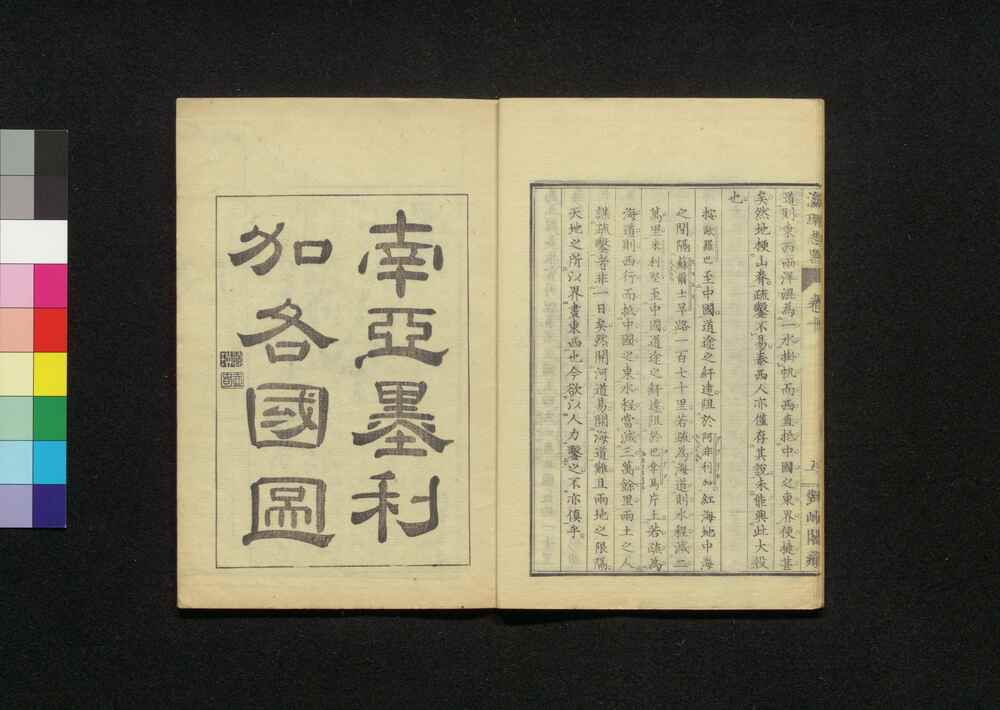 瀛環志畧 卷十
道則東西兩洋混為一水掛帆而西直抵中國之東界便捷甚
矣然地梗山脊疏鑿不易泰西人亦僅存其說未能興此大役
也
按歐羅巴至中國道途之紆遠阻於阿非利加紅海地中海
之間隔蘇爾士旱路一百七十里若疏為海道則水程減二
萬里米利堅至中國道途之紆遠阻於巴拿馬片土若疏為
海道則西行而抵中國之東水程當減三萬餘里兩土之人
謀疏鑿者非一日矣然開河道易開海道難且兩地之限隔
天地之所以界畫東西也今欲以人力鑿之不亦傎乎
南亞墨利
加各國圖